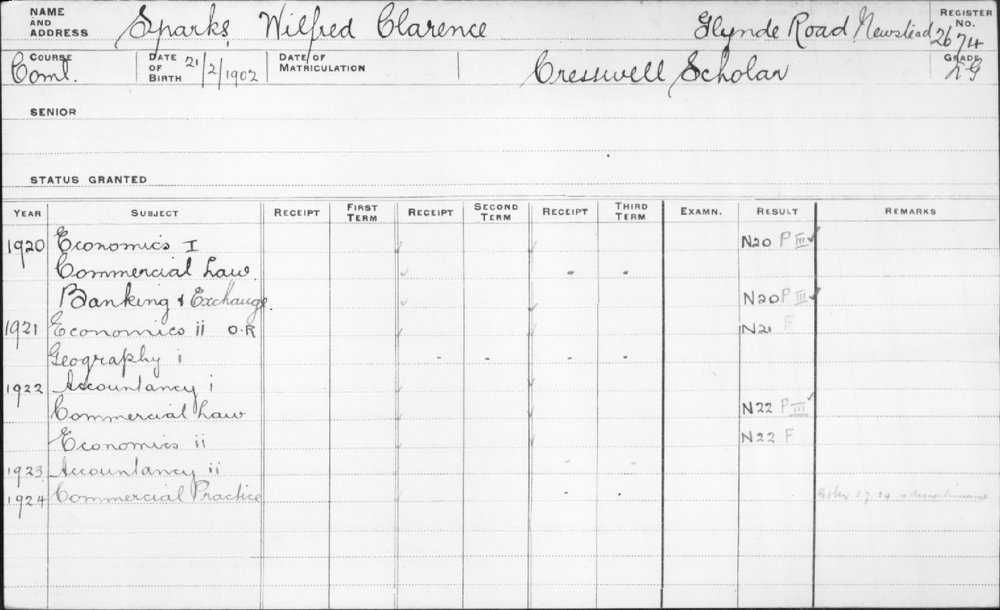 NAME AND ADDRESS Sparks, Wilfred Clarence Glynde Road Newstead REGISTER No. 2674
COURSE Coml. DATE OF BIRTH 21/2/1902 DATE OF MATRICULATION Cresswell Scholar GRADE
SENIOR
STATUS GRANTED
YEAR SUBJECT RECEIPT FIRST TERM RECEIPT SECOND TERM RECEIPT THIRD TERM EXAMN. RESULT REMARKS
1920 Economics I ✓ ✓ N20 P III ✓
Commercial Law. ✓ - -
Banking & Exchange. ✓ ✓ N20 P III ✓
1921 Economics ii O.R ✓ ✓ N21 F
Geography i - - - -
1922 Accountancy i ✓ ✓
Commercial Law ✓ ✓ N22 P III ✓
Economics ii ✓ ✓ N22 F
1923 Accountancy ii ✓ - -
1924 Commercial Practice ✓ - -